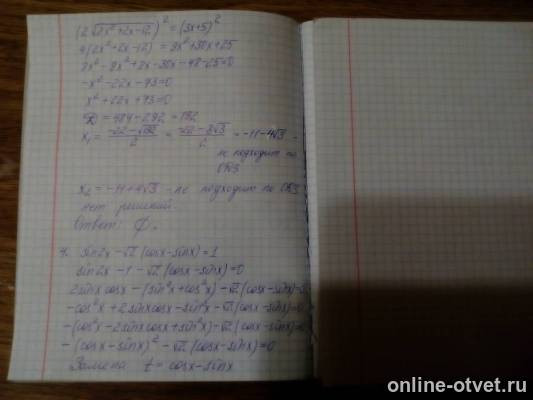 (2√2x²+2x-12)² = (3x+5)²
4(2x²+2x-12) = 9x²+30x+25
8x²-9x²+8x-30x-48-25=0
-x²-22x-73=0
x²+22x+73=0
D=484-292=192
x₁ = (-22-√192)/2 = (-22-8√3)/2 = -11-4√3 -
не подходит по
ОДЗ
x₂ = -11+4√3 - не подходит по ОДЗ
нет решений.
Ответ: ∅.
4. sin2x-√2(cosx-sinx)=1
sin2x-1-√2(cosx-sinx)=0
2sinxcosx-(sin²x+cos²x)-√2(cosx-sinx)=0
-cos²x+2sinxcosx-sin²x-√2(cosx-sinx)=0
-(cos²x-2sinxcosx+sin²x)-√2(cosx-sinx)=0
-(cosx-sinx)²-√2(cosx-sinx)=0
Замена t=cosx-sinx
online-otvet.ru